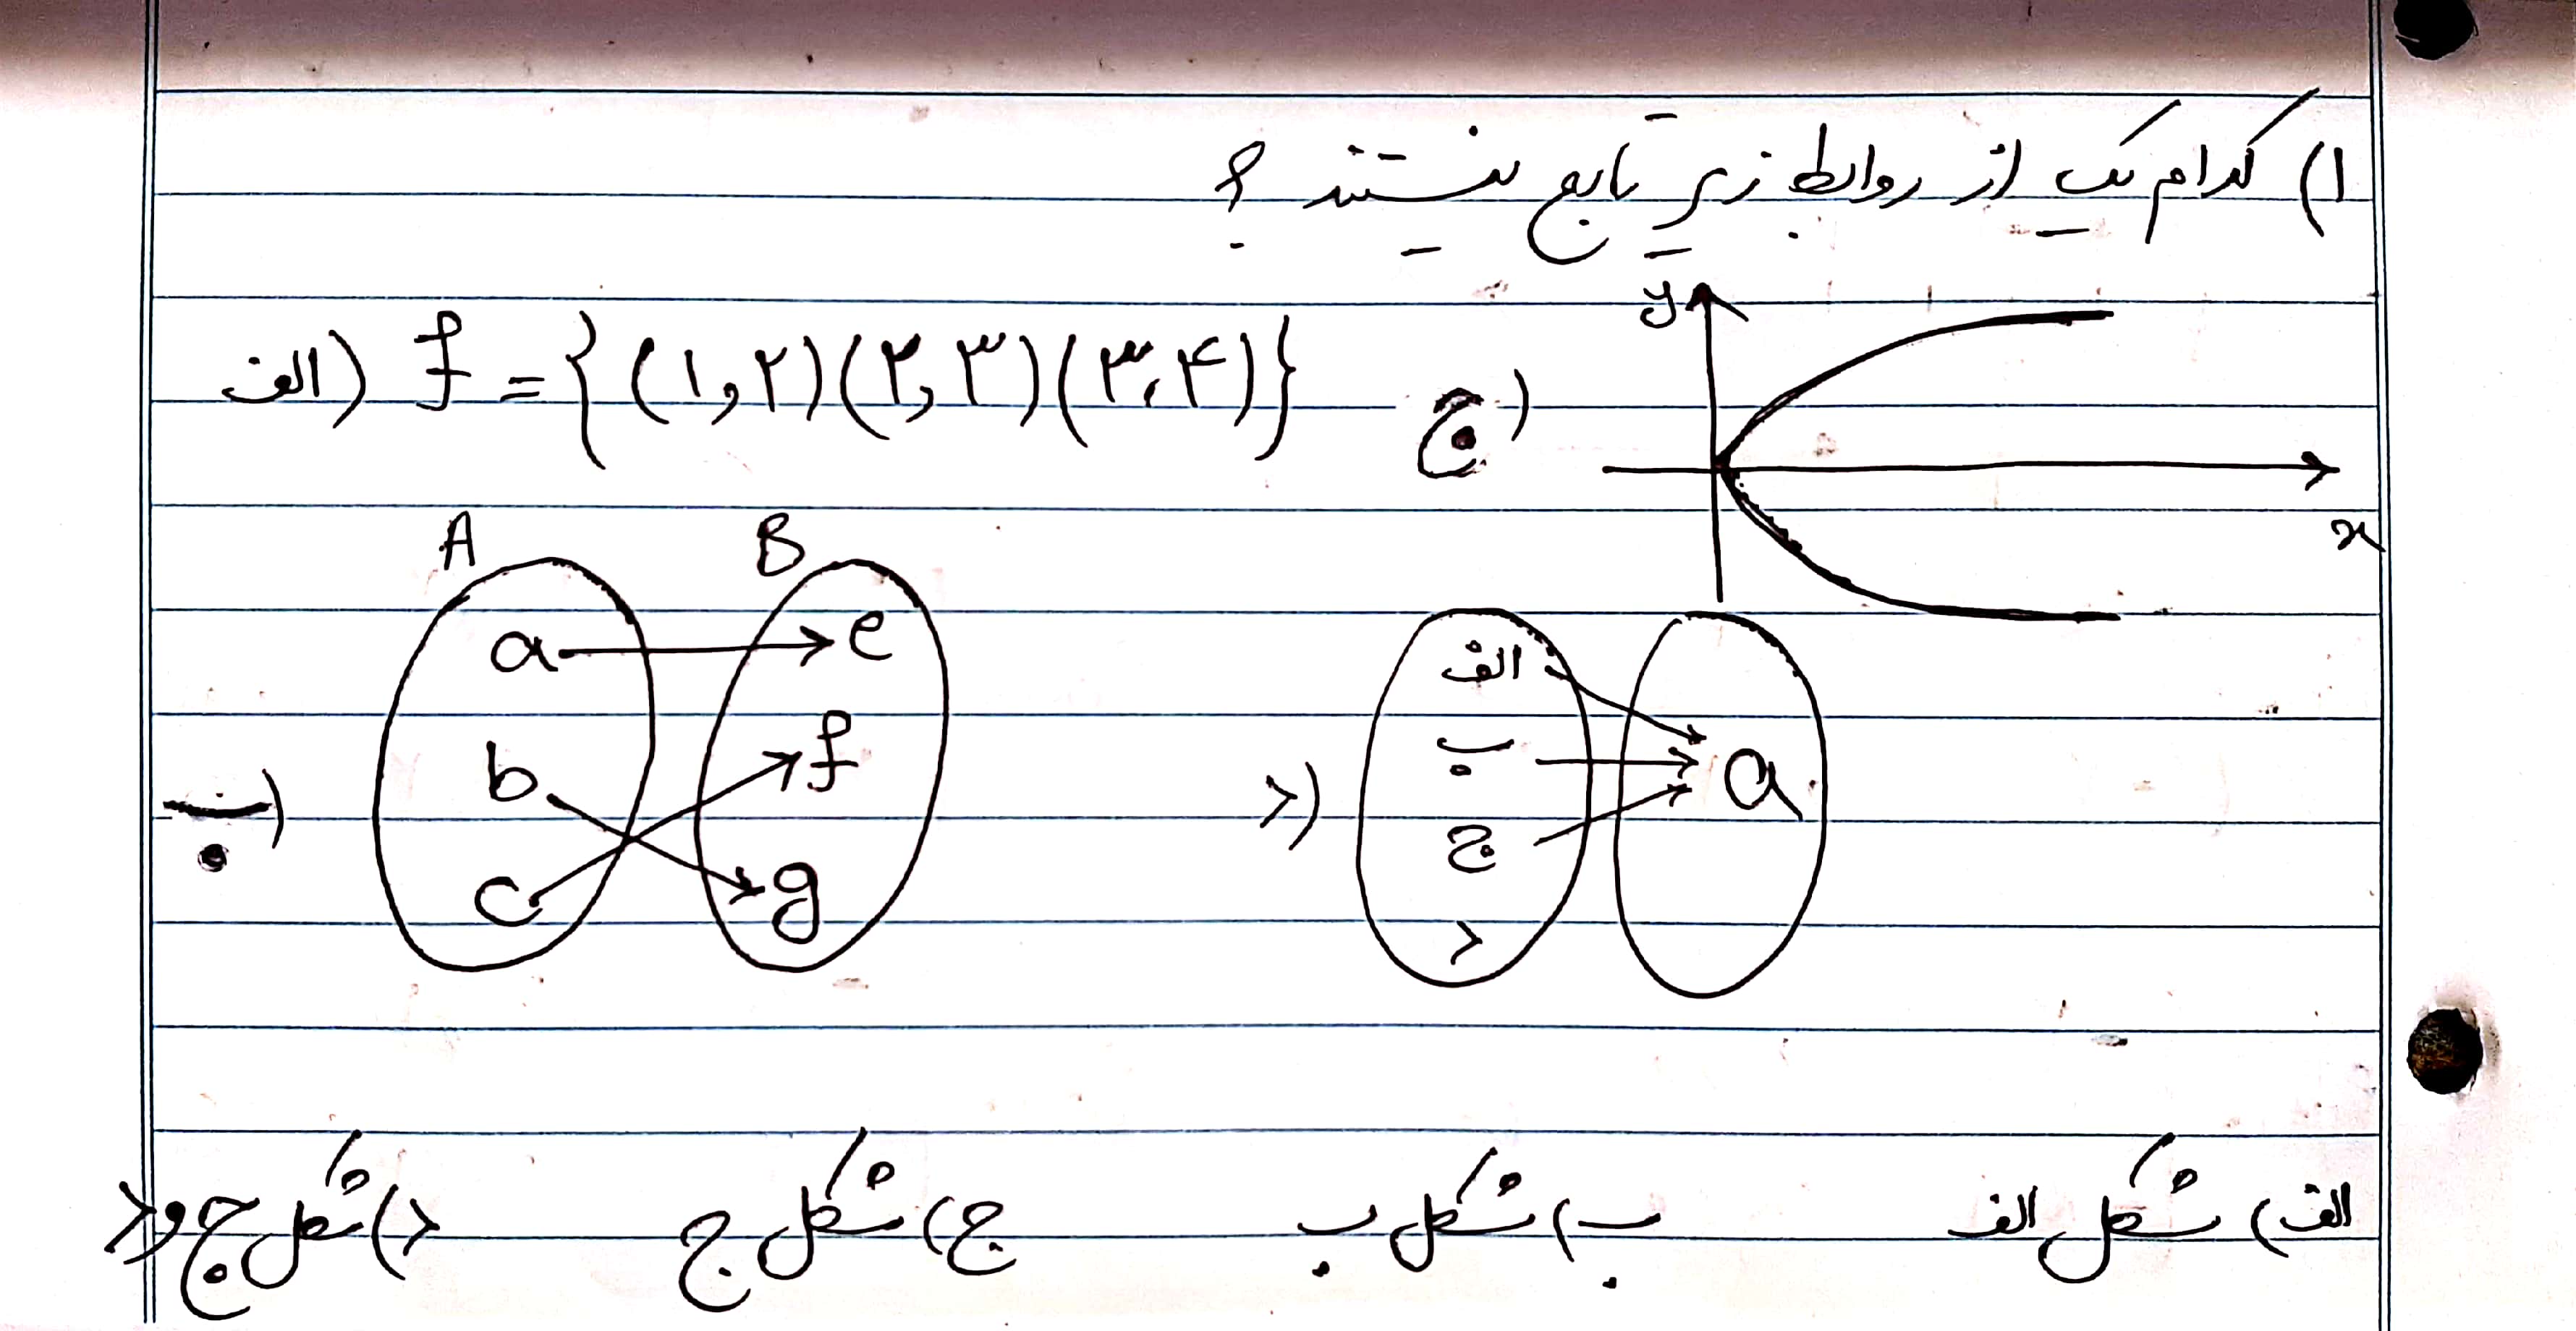 ۱) کدام یک از روابط زیر تابع نیستند ؟
الف) f = {(۱,۲)(۲,۳)(۳,۴)}
ج)
y
x
A B
a e
b f
c g
ب)
د)
الف
ب a
ج
د
الف) شکل الف ب) شکل ب ج) شکل ج د) شکل ج و د